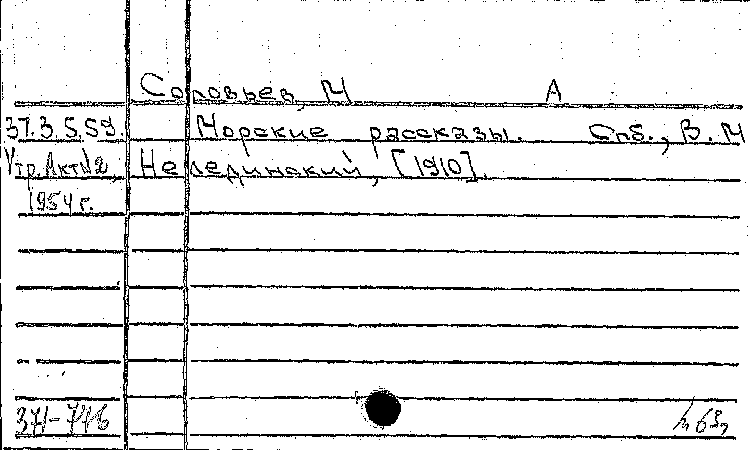 Соловьев, М А
37.3.5.59. Морские рассказы. Спб., В. М
Утр. Акт №2, Нелединский, [1910].
1954 г.
371-776